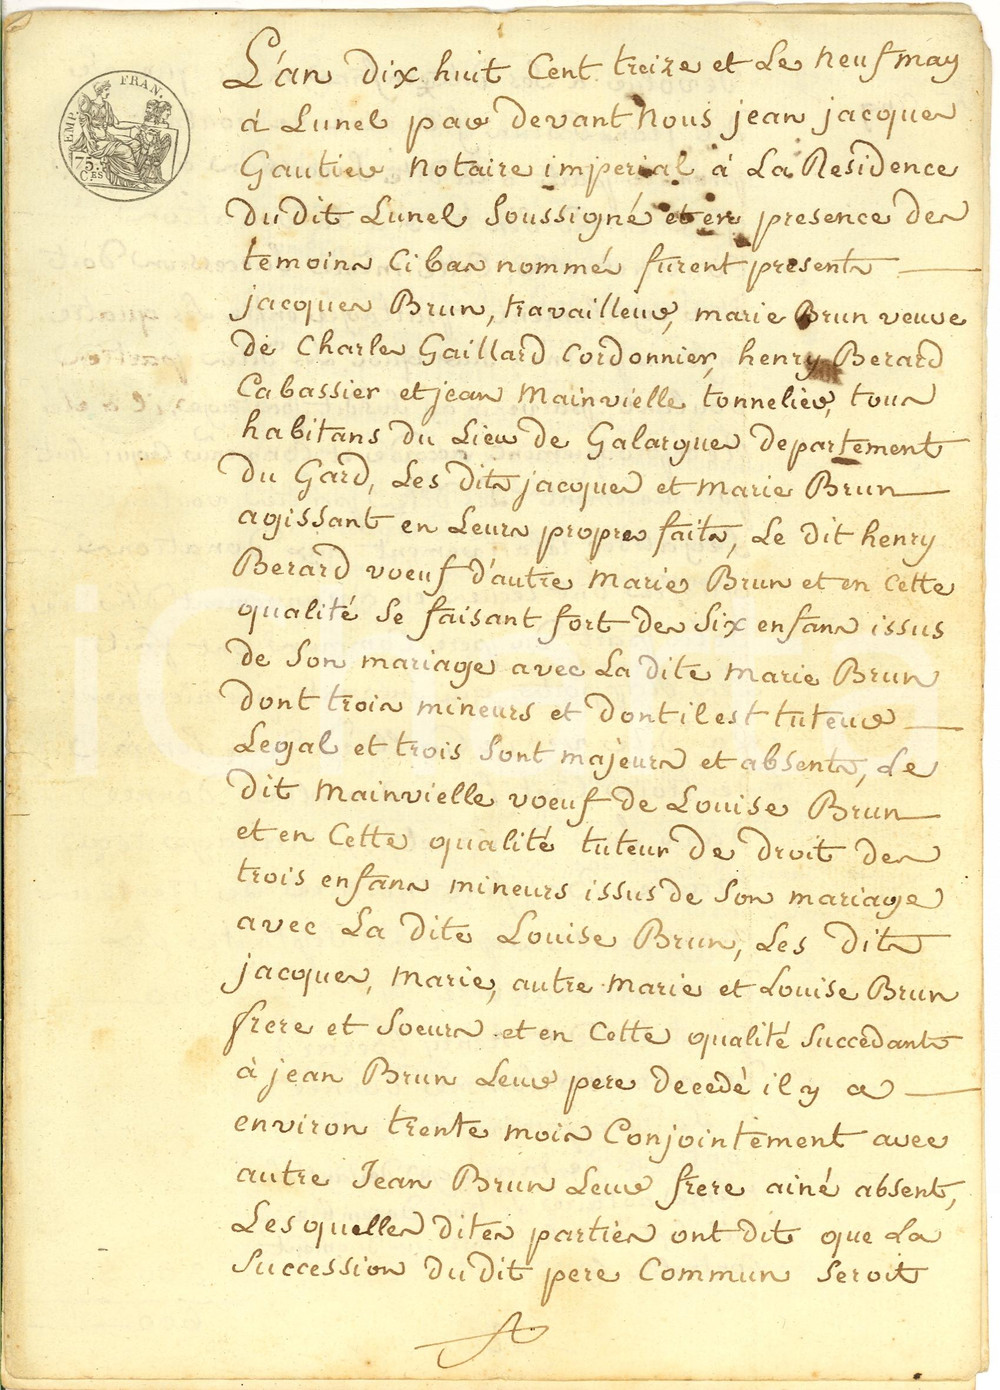 EMP. FRAN.
75
CES
L'an dix huit Cent treize et Le neuf may
à Lunel par devant Nous jean jacques
Gautier Notaire imperial à La Residence
du dit Lunel Soussigné et en presence des
temoins Ci bas nommés furent presents
jacques Brun, travailleur, marie Brun veuve
de Charles Gaillard Cordonnier, henry Berard
Cabassier et jean Mainvielle tonnelier, tous
habitans du Lieu de Galargues departement
du Gard, Les dits jacques et Marie Brun
agissant en Leurs propres faits, Le dit henry
Berard voeuf d'autre Marie Brun et en Cette
qualité Se faisant fort des Six enfans issus
de Son mariage avec La dite Marie Brun
dont trois mineurs et dont il est tuteur
Legal et trois Sont majeurs et absents, Le
dit Mainvielle voeuf de Louise Brun
et en Cette qualité tuteur de droit des
trois enfans mineurs issus de Son mariage
avec La dite Louise Brun, Les dits
jacques, Marie, autre Marie et Louise Brun
frere et Soeurs et en Cette qualité Succedants
à jean Brun Leur pere decedé il y a
environ trente mois Conjointement avec
autre Jean Brun Leur frere ainé absent,
Lesquelles dites parties ont dit que La
Succession du dit pere Commun Seroit